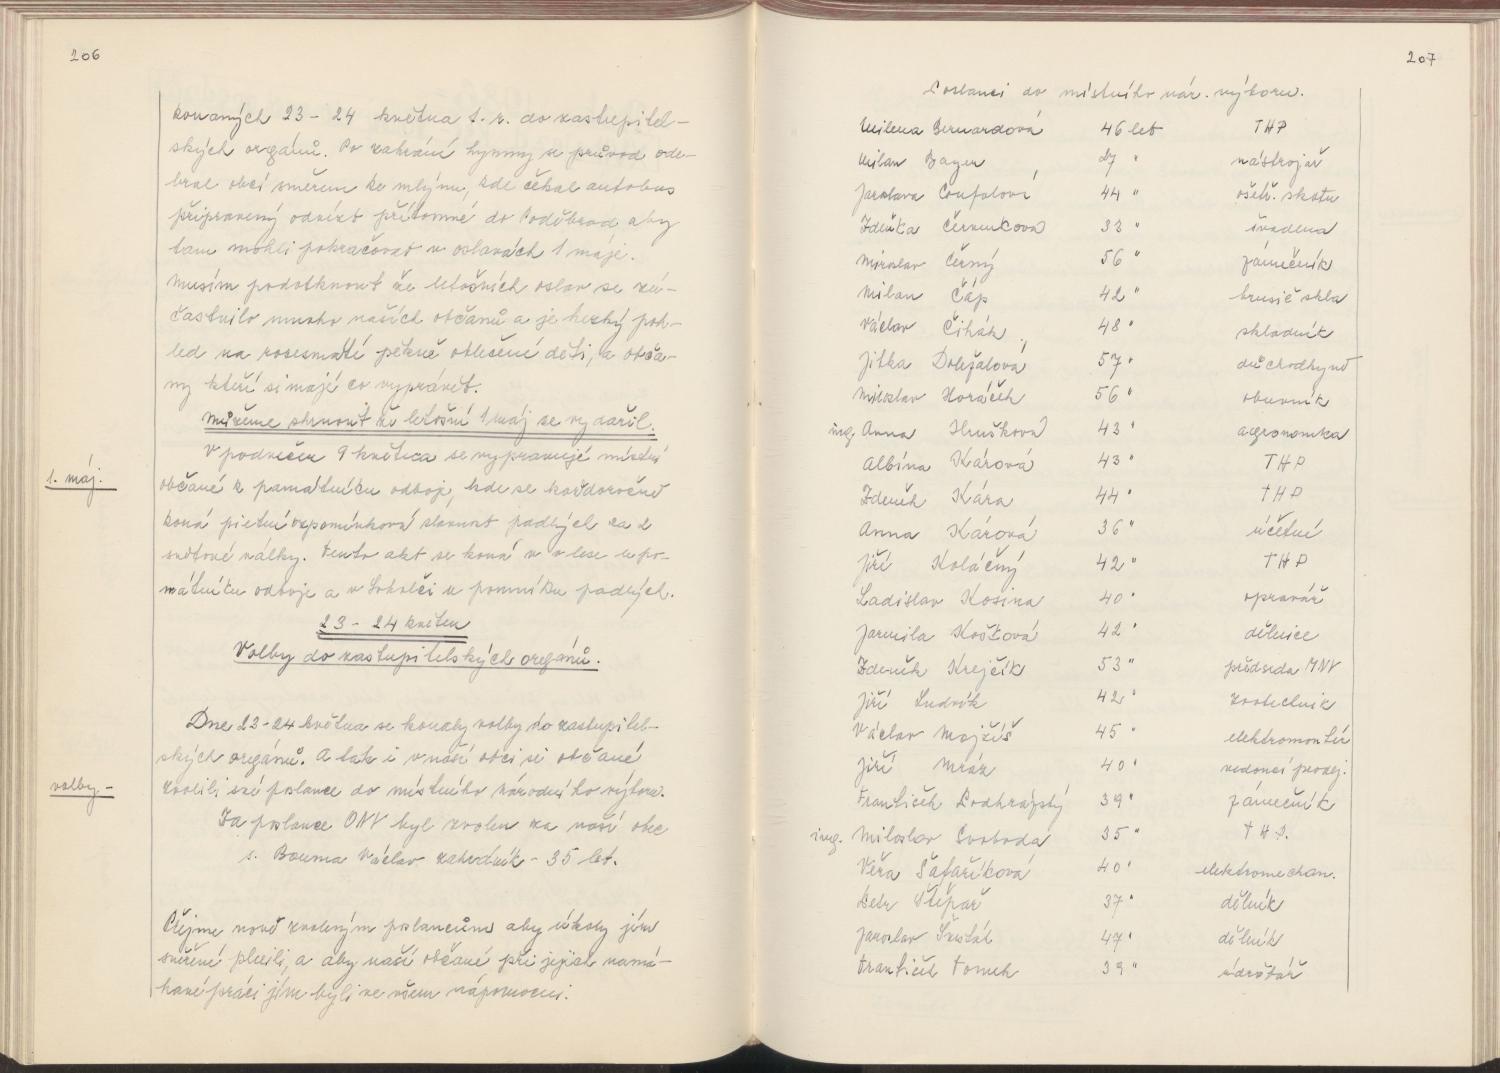 206
konaných 23 - 24 května t. r. do zastupitel-
ských orgánů. Po zahrání hymny se průvod ode-
bral obcí směrem ke mlýnu, kde čekal autobus
připravený odvézt přítomné do Poděbrad aby
tam mohli pokračovat v oslavách 1 máje.
Musím podotknout že letošních oslav se zú-
častnilo mnoho našich občanů a je hezký poh-
led na rozesmáté pěkně oblečené děti, a obča-
ny kteří si mají co vyprávět.
Můžeme shrnout že letošní 1 máj se vydařil.
V podvečer 9 května se vypravují místní
1. máj.
občané k památníku odboje, kde se každoročně
koná pietní vzpomínková slavnost padlých za 2
světové války. Tento akt se koná v v lese u po-
mátníku odboje a v Sokolči u pomníku padlých.
23 - 24 květen
Volby do zastupitelských orgánů.
Dne 23-24 května se konaly volby do zastupitel-
ských orgánů. A tak i v naší obci si občané
volby -
zvolili své poslance do místního národního výboru.
Za poslance ONV byl zvolen za naší obec
s. Bouma Václav zahradník - 35 let.
Přejme nově zvoleným poslancům aby úkoly jím
svěřené plnili, a aby naší občané při jejich namá-
havé práci jím byli ve všem nápomocni.
207
Poslanci do místního nár. výboru.
Milena Bernardová 46 let THP
Milan Bayer 27 " nástrojař
Jaroslava Coufalová 44 " ošetř. skotu
Zdeňka Červenková 33 " švadlena
Miroslav Černý 56 " zámečník
Milan Čáp 42 " brusič skla
Václav Čihák 48 " skladník
Jitka Doležalová 57 " důchodkyně
Miloslav Horáček 56 " obuvník
ing. Anna Hrušková 43 " agronomka
Albína Kárová 43 " THP
Zdeněk Kára 44 " THP
Anna Kárová 36 " účetní
Jiří Koláčný 42 " THP
Ladislav Kosina 40 " opravář
Jarmila Košťová 42 " dělnice
Zdeněk Krejčík 53 " předseda MNV
Jiří Ludvík 42 " zootechnik
Václav Mojžíš 45 " elektromontér
Jiří Mráz 40 " vedoucí prodej.
František Podhrázský 39 " zámečník
ing. Miloslav Svoboda 35 " THP.
Věra Šafaříková 40 " elektromechan.
Petr Štěpař 37 " dělník
Jaroslav Šusták 47 " dělník
František Tomek 39 " údržbář